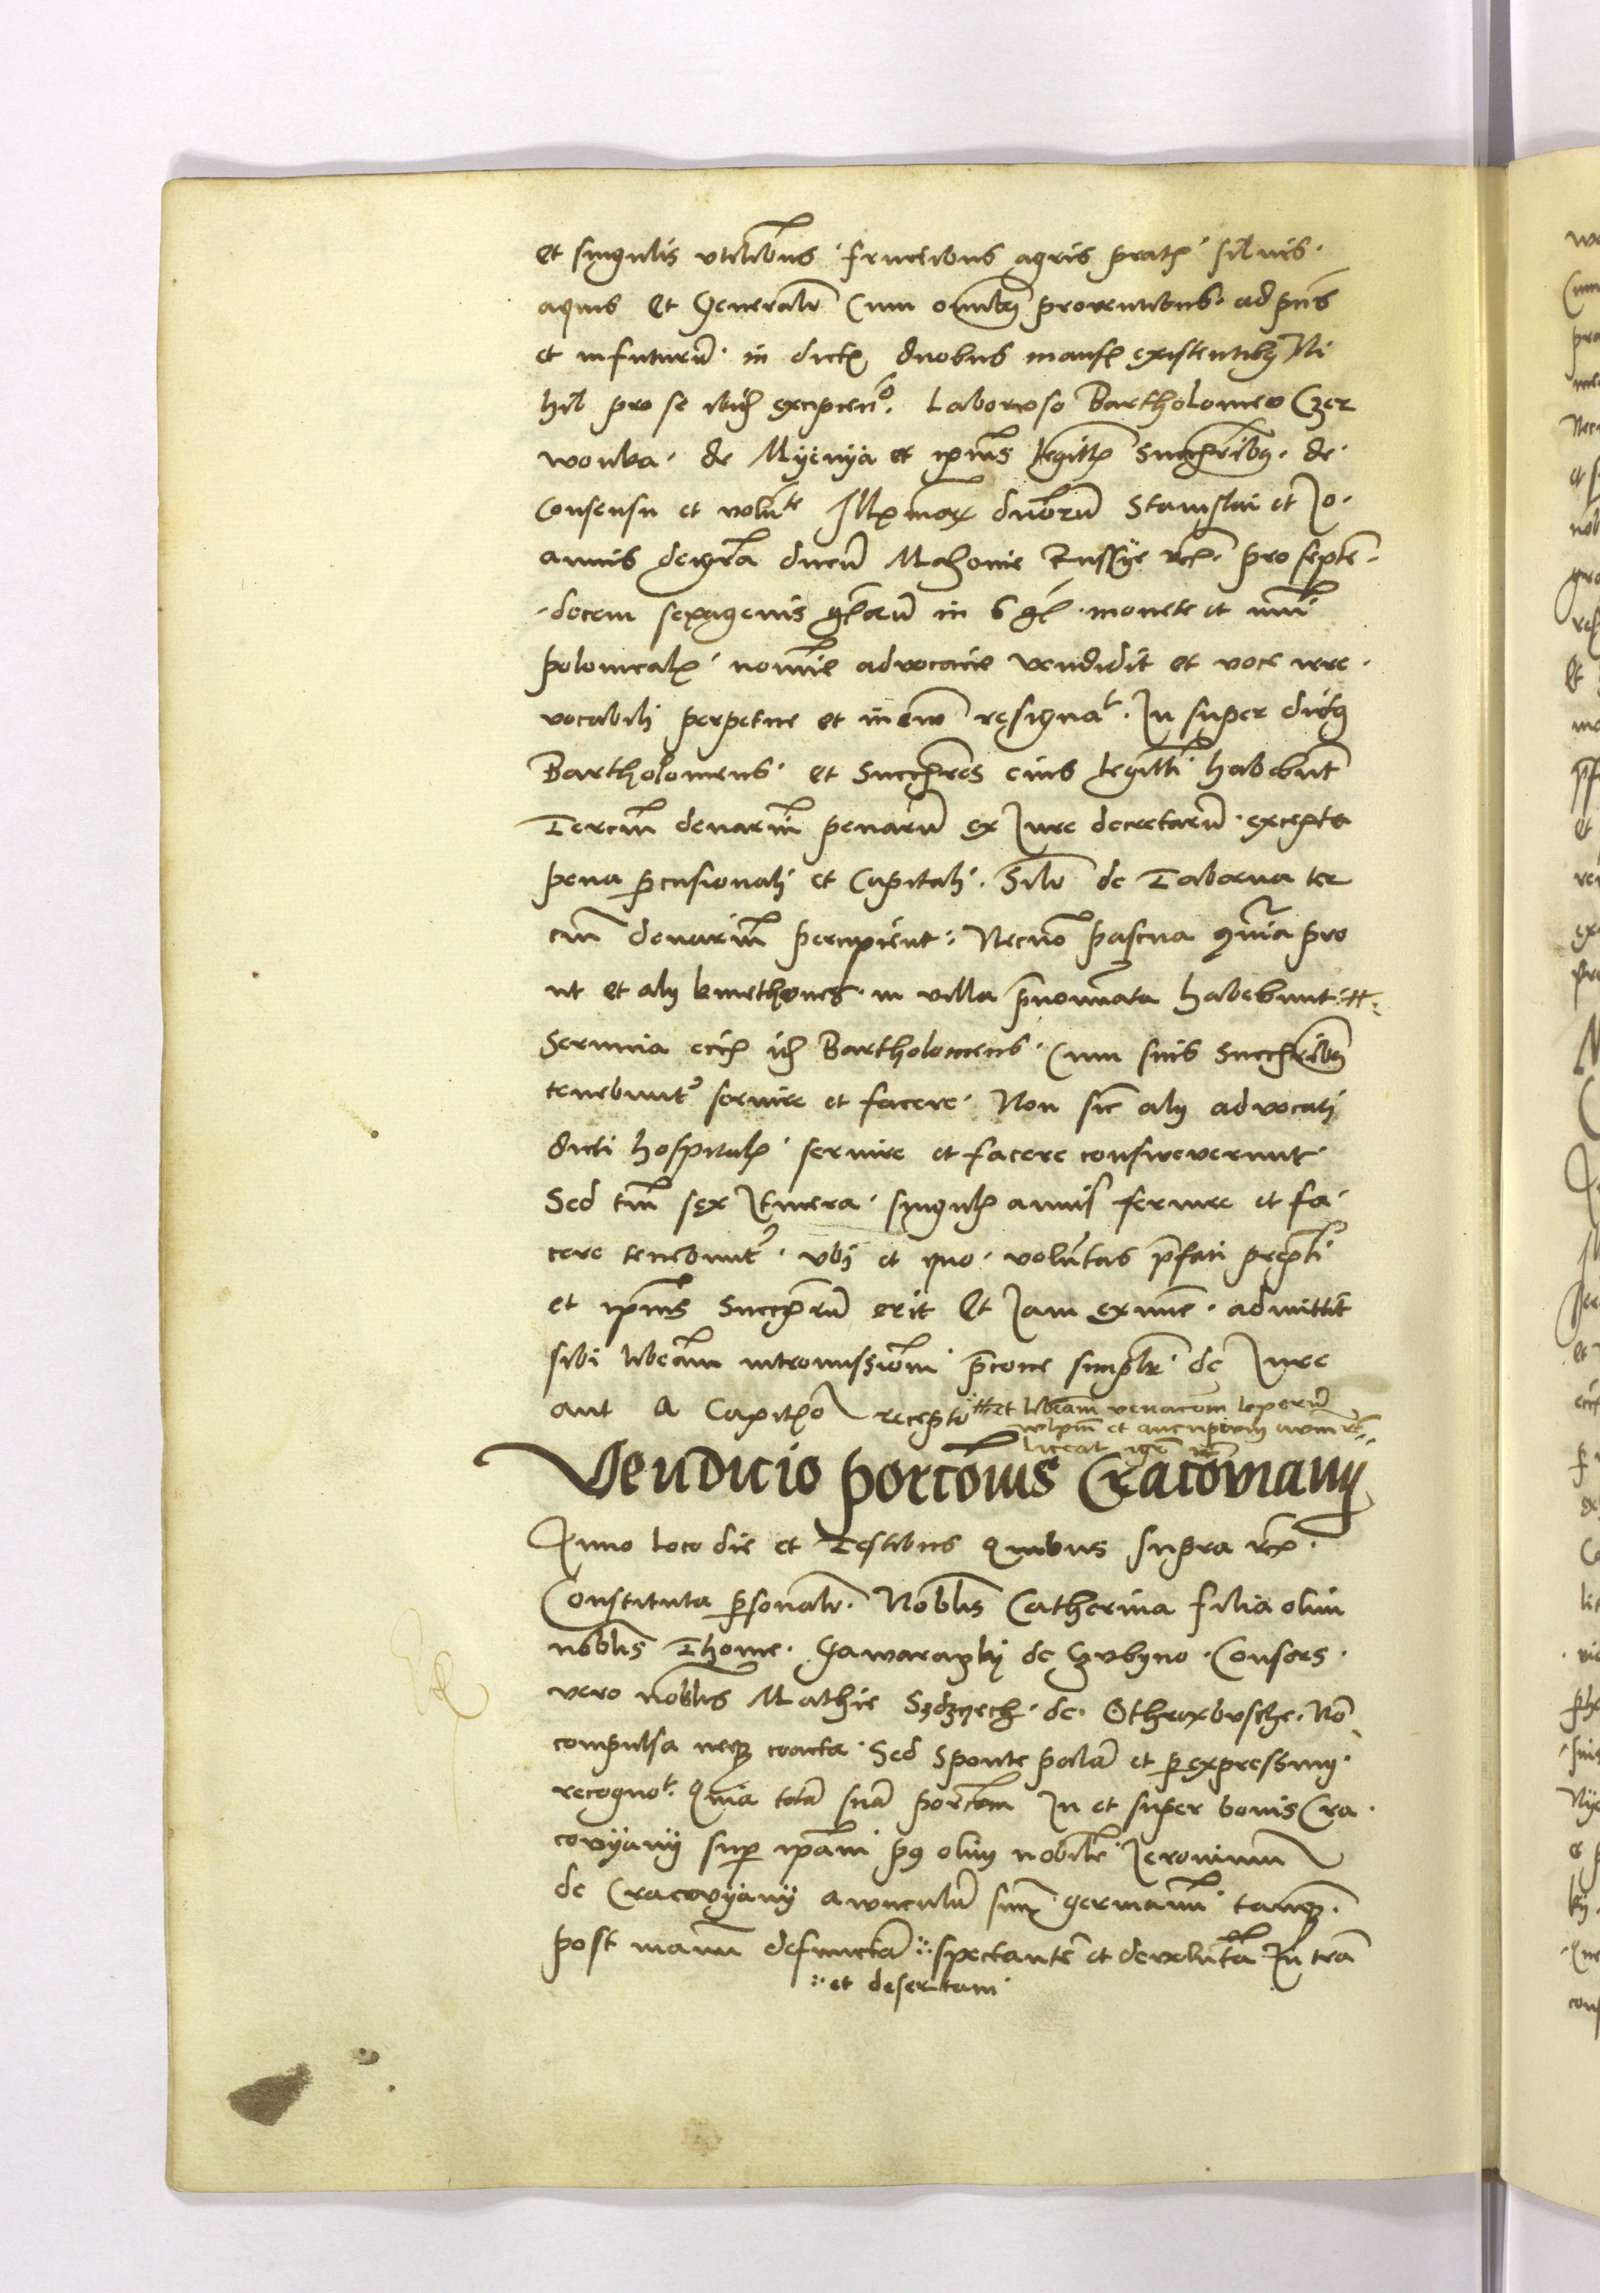 et singulis vtilibus fructibus agris prat silvis
aquis et Generalr Cum omibus proventibus ad pns
et in futurum in dict duobus mansis existentibus Ni
hil pro se ibid excipiendo Laborioso Bartholomeo Czer
wonka de Myenya et ipius legitt Succribus de
Consensu et volunte Illmor ducum Stanislai et Jo
annis dei gra ducum Mazouie Russye rc pro septem
decem sexagenis grorum in gr monete et nui
polonicalis nomine advocacie vendidit et voce irre
vocabili perpetue et in evum resignat In super dictus
Bartholomeus et Succres eius legitti habebunt
Tercium denarium penarum ex Jure decretarum excepta
pena pcusionali et Capitali Silr de Taberna ter
cium denarium percipient Necnon pascua omia pro
ut et alij kmethones in villa prenominata habebunt
Seruicia eciam idem Bartholomeus Cum suis Succribus
tenebuntur seruire et facere Non sic alij advocati
dicti hospitalis seruire et facere consweverunt
Sed tm sex Itinera singulis annis seruire et fa
cere tenebuntur vbi et quo voluntas pfati prepti
et ipius Succrum erit Et Jam ex nunc admittit
sibi liberam intromissionem precone simplr de Jure
aut a Capitro recepto et liberam venacionem leporum
vulpium et
liceat
Vendicio porcionis Cracoviany
Anno loco die et Testibus Quibus supra rc
Constituta psonalr Nobilis Catherina filia olim
nobilis Thome Gawarazky de Gubyno Consors
vero nobilis Mathie Szdzyech de Othroxbusche No
compulsa neque coacta Sed Sponte palam et p expressum
recognot Quia totam suam porcionem In et super bonis Cra
covyany sup ipam post olim nobilem Jeronimum
de Cracovyany awunculum suum germanum tanquam
post manum defunctam spectantem et devolutam In tra
et desertam